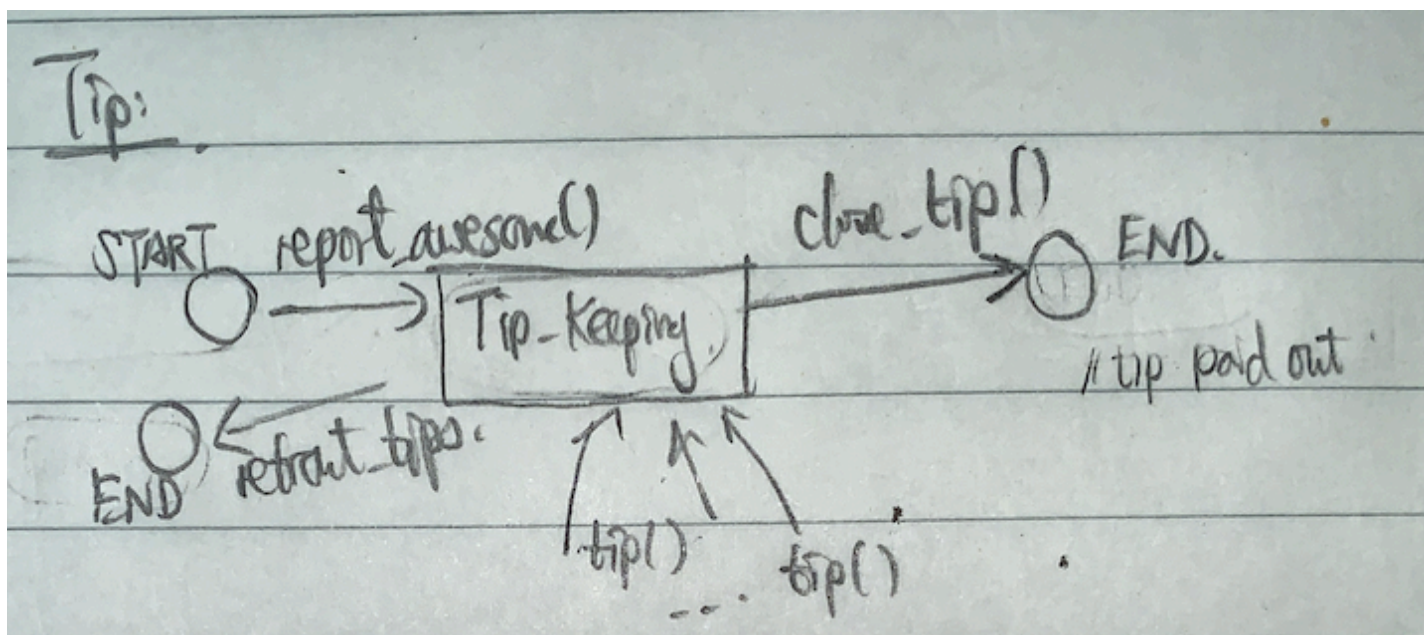 Tip:
START
report_awesome()
close_tip()
END.
Tip_Keeping
// tip paid out
END
retract_tips.
tip()
...
tip()